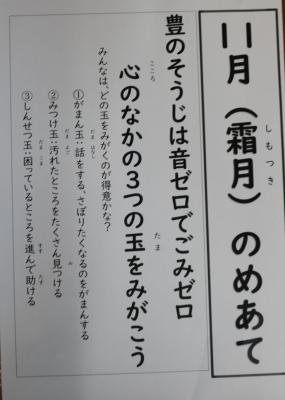 11月（霜月）のめあて
しもつき
豊のそうじは音ゼロでごみゼロ
心のなかの3つの玉をみがこう
こころ
たま
みんなは、どの玉をみがくのが得意かな？
①がまん玉：話をする、さぼりたくなるのをがまんする
だま
はなし
②みつけ玉：汚れたところをたくさん見つける
だま
よご
み
③しんせつ玉：困っているところを進んで助ける
だま
こま
すす
たす